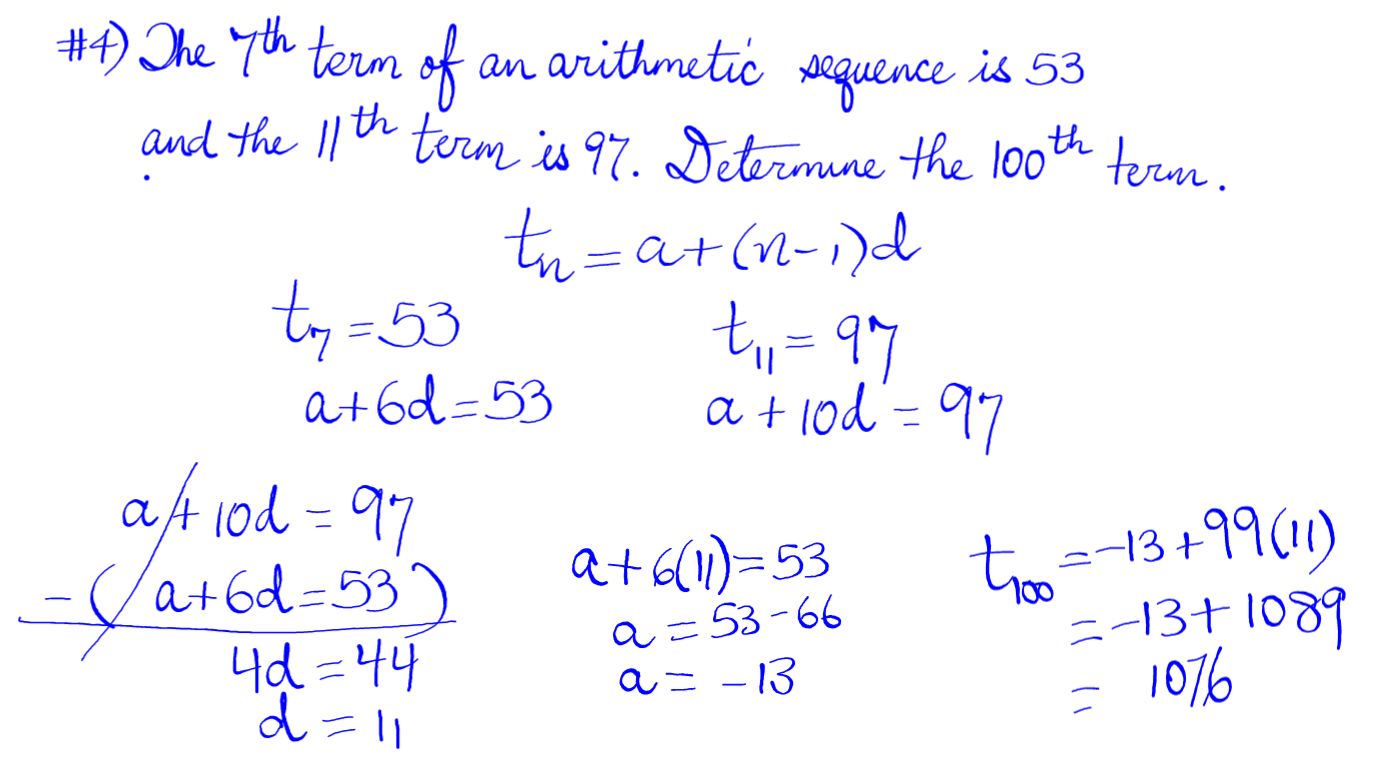 #4) The 7th term of an arithmetic sequence is 53
and the 11th term is 97. Determine the 100th term.
tn = a+(n-1)d
t7 = 53
a+6d=53
t11 = 97
a + 10d = 97
a + 10d = 97
-( a+6d=53 )
4d = 44
d = 11
a+6(11)=53
a = 53-66
a = -13
t100 = -13+99(11)
= -13+1089
= 1076